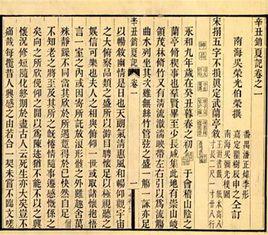 辛丑銷夏記卷之一
南海吳榮光伯榮撰
番禺潘正煒季彤
宋搨五字不損真定武蘭亭敘
永和九年歲在癸丑暮春之初會于會稽山陰之
蘭亭脩稧事也羣賢畢至少長咸集此地有崇山峻
領茂林脩竹又有清流激湍映帶左右引以為流觴
曲水列坐其次雖無絲竹管弦之盛一觴一詠亦足
辛丑銷夏記 卷一
以暢敘幽情是日也天朗氣清惠風和暢仰觀宇宙
之大俯察品類之盛所以遊目騁懷足以極視聽之
娛信可樂也夫人之相與俯仰一世或取諸懷抱悟
言一室之內或因寄所託放浪形骸之外雖趣舍萬
殊靜躁不同當其欣於所遇蹔得於己快然自足
不知老之將至及其所之既惓情隨事遷感慨係之
矣向之所欣俛仰之間以為陳迹猶不能不以之興
懷況脩短隨化終期於盡古人云死生亦大矣豈不
痛哉每攬昔人興感之由若合一契未嘗不臨文嗟